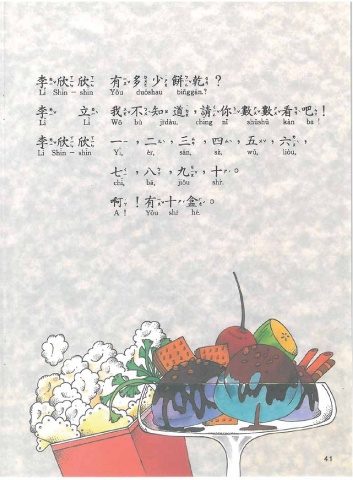 李欣欣 有多少餅乾？
Li Shin-shin Yǒu duōshau bǐnggān?
李 立 我不知道，請你數數看吧！
Li Li Wǒ bù jrdàu, chǐng nǐ shǔshǔ kàn ba!
李欣欣 一，二，三，四，五，六，
Li Shin-shin Yī, èr, sān, sà, wǔ, liòu,
七，八，九，十。
chi, bā, jiǒu shŕ.
啊！有十盒。
A! Yǒu shŕ hé.
41